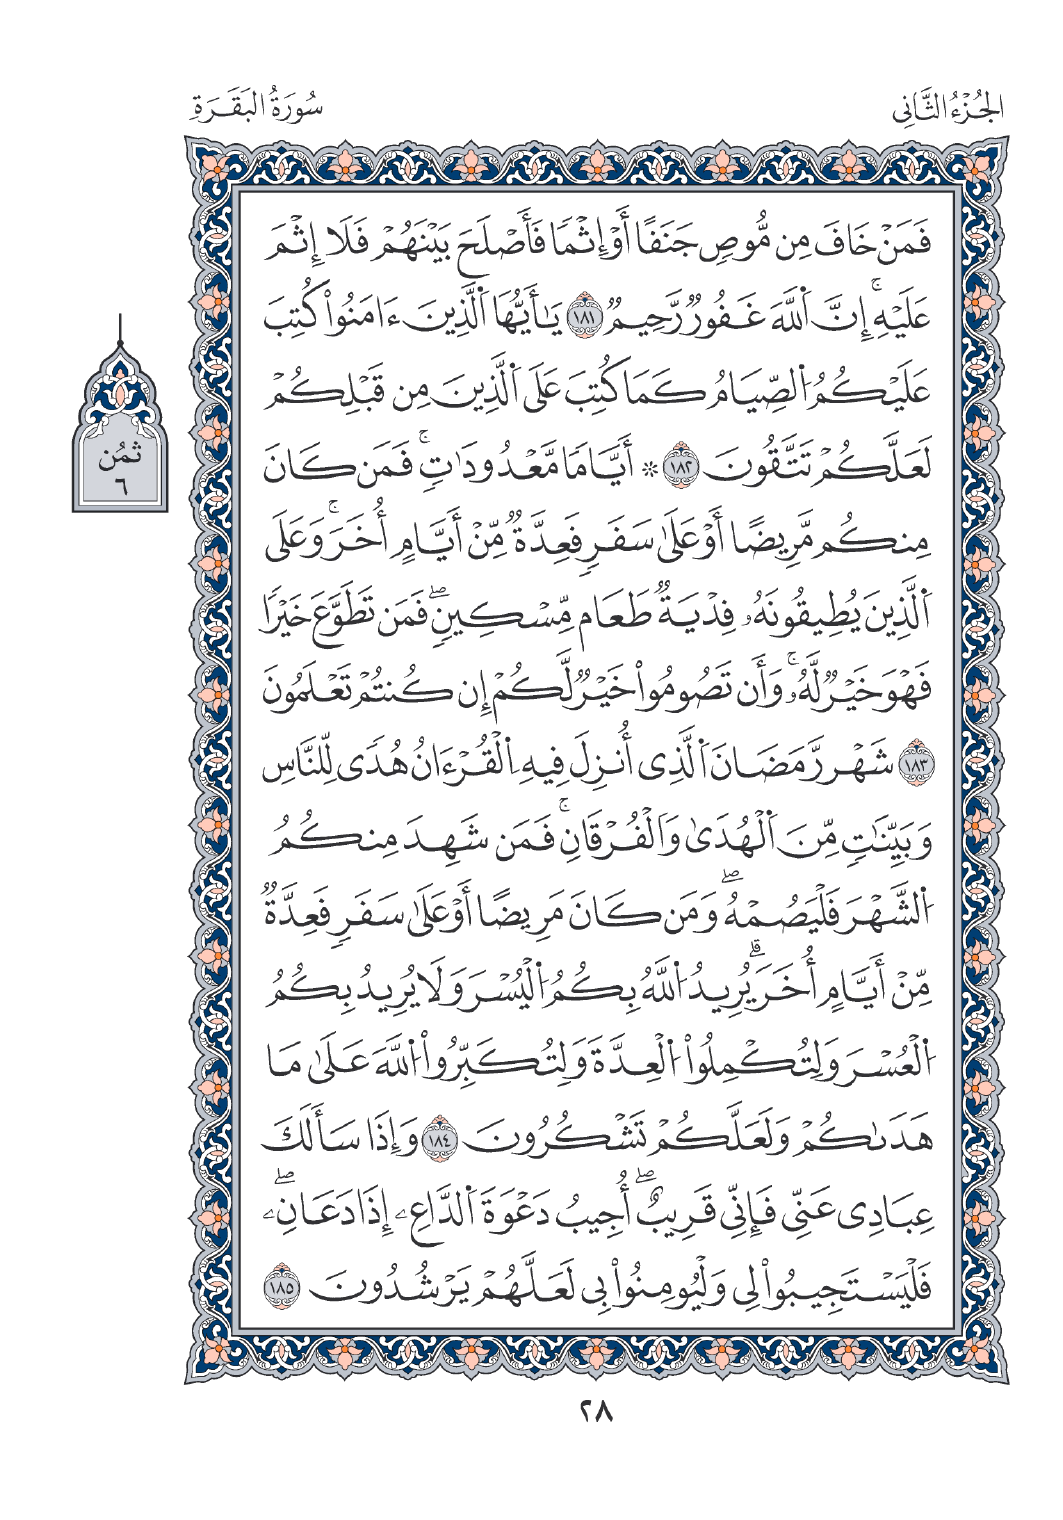 الجُزْءُ الثَّانِى
سُورَةُ البَقَرَةِ
فَمَنْ خَافَ مِن مُّوصٖ جَنَفًا أَوِ اِثْمٗا فَأَصْلَحَ بَيْنَهُمْ فَلَا إِثْمَ
عَلَيْهِۚ إِنَّ اَ۬للَّهَ غَفُورٞ رَّحِيمٞ ١٨١ يَٰأَيُّهَا اَ۬لَّذِينَ ءَامَنُواْ كُتِبَ
عَلَيْكُمُ اُ۬لصِّيَامُ كَمَا كُتِبَ عَلَى اَ۬لَّذِينَ مِن قَبْلِكُمْ
لَعَلَّكُمْ تَتَّقُونَ ١٨٢ ۞ أَيَّامٗا مَّعْدُودَٰتٖۚ فَمَن كَانَ
مِنكُم مَّرِيضًا أَوْ عَلَىٰ سَفَرٖ فَعِدَّةٞ مِّنْ أَيَّامٍ أُخَرَۚ وَعَلَى
اَ۬لَّذِينَ يُطِيقُونَهُۥ فِدْيَةٞ طَعَامُ مِسْكِينٖۖ فَمَن تَطَوَّعَ خَيْرٗا
فَهْوَ خَيْرٞ لَّهُۥۚ وَأَن تَصُومُواْ خَيْرٞ لَّكُمْ إِن كُنتُمْ تَعْلَمُونَ
١٨٣ شَهْرُ رَمَضَانَ اَ۬لَّذِى أُنزِلَ فِيهِ اِ۬لْقُرْءَانُ هُدٗى لِّلنَّاسِ
وَبَيِّنَٰتٖ مِّنَ اَ۬لْهُدَىٰ وَالْفُرْقَانِۚ فَمَن شَهِدَ مِنكُمُ
اُ۬لشَّهْرَ فَلْيَصُمْهُۖ وَمَن كَانَ مَرِيضًا أَوْ عَلَىٰ سَفَرٖ فَعِدَّةٞ
مِّنْ أَيَّامٍ أُخَرَۗ يُرِيدُ اُ۬للَّهُ بِكُمُ اُ۬لْيُسْرَ وَلَا يُرِيدُ بِكُمُ
اُ۬لْعُسْرَ وَلِتُكْمِلُواْ اُ۬لْعِدَّةَ وَلِتُكَبِّرُواْ اُ۬للَّهَ عَلَىٰ مَا
هَدَىٰكُمْ وَلَعَلَّكُمْ تَشْكُرُونَ ١٨٤ وَإِذَا سَأَلَكَ
عِبَادِى عَنِّى فَإِنِّى قَرِيبٌۖ أُجِيبُ دَعْوَةَ اَ۬لدَّاعِۦ إِذَا دَعَانِۦۖ
فَلْيَسْتَجِيبُواْ لِى وَلْيُومِنُواْ بِى لَعَلَّهُمْ يَرْشُدُونَ ١٨٥
ثُمُن
٦
٢٨